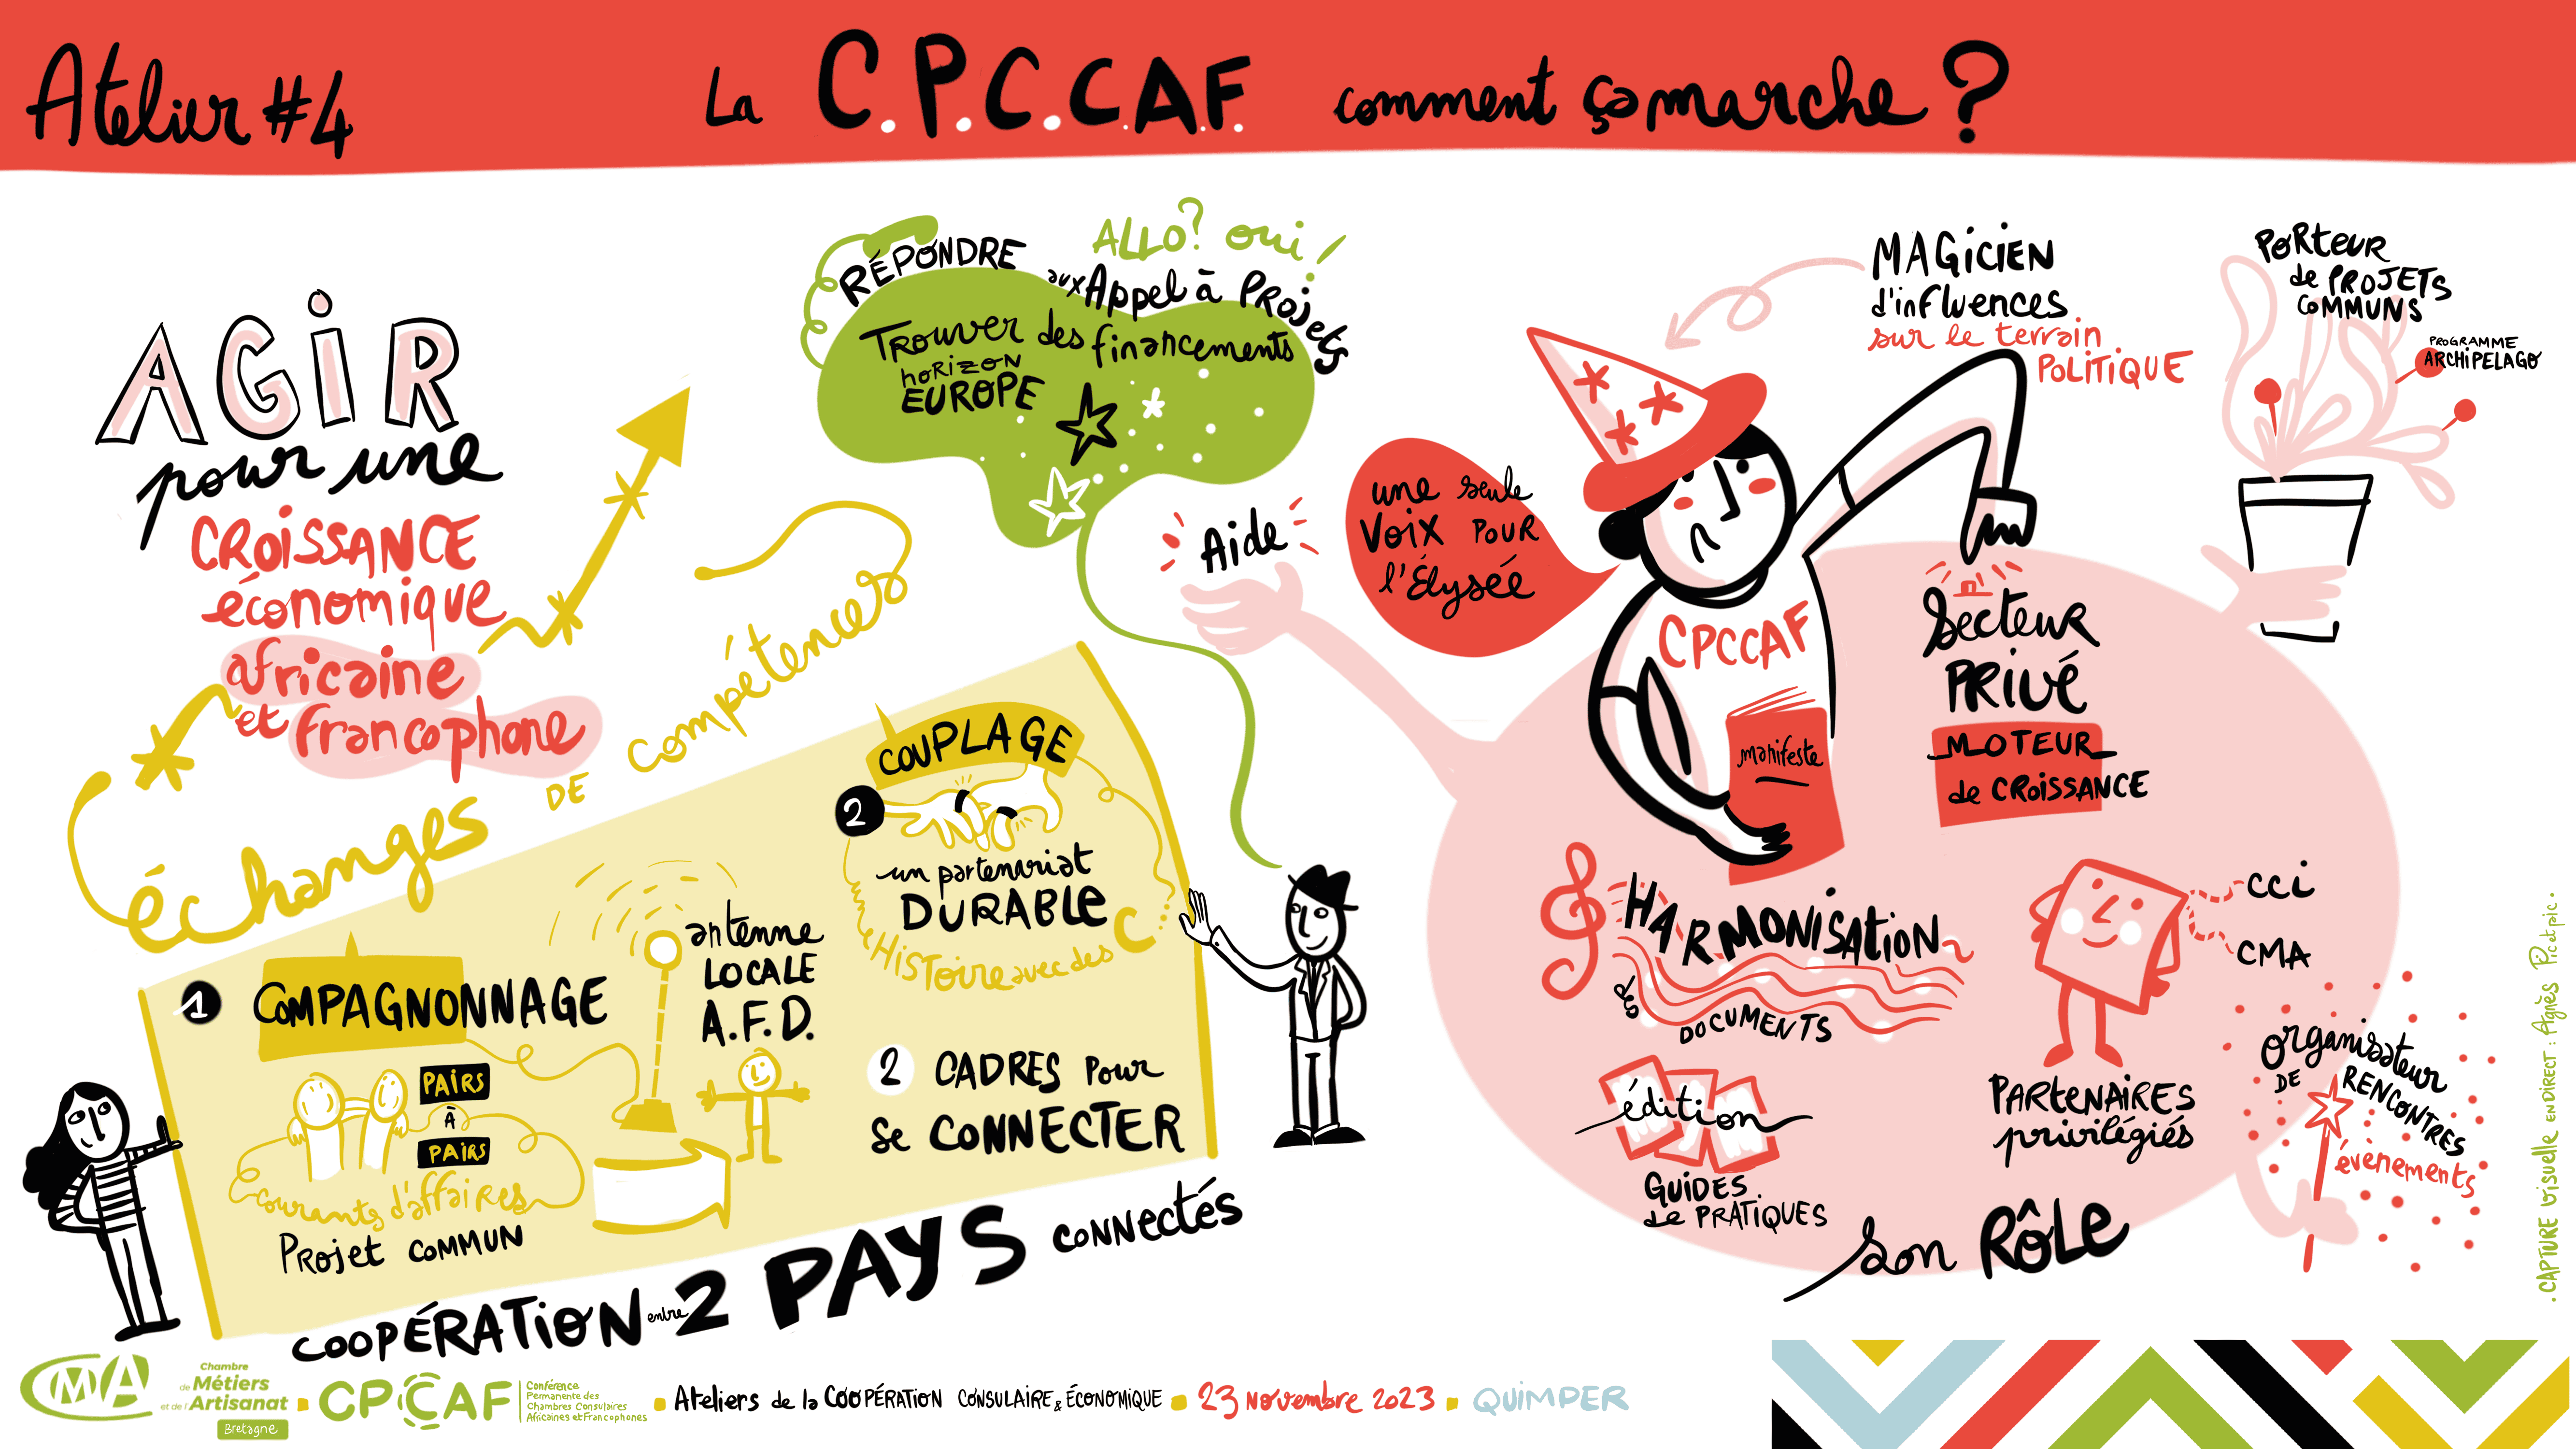 Atelier #4
La C.P.C.C.A.F. comment ça marche ?
AGIR
pour une
CROISSANCE
économique
africaine
et francophone
échanges DE compétences
ALLO? oui !
RÉPONDRE
aux Appel à PROJets
TROUVER des financements
hoRizoN
EUROPE
Aide
une seule
VOIX POUR
l'Élysée
MAGiCiEN
d'inFluences
sur le terrain
POLITIQUE
PORteuR
de PROJETS
COMMUNS
PROGRAMME
ARCHIPELAGO
CPCCAF
manifeste
Secteur
PRIVÉ
MOTEUR
de CROISSANCE
1 COMPAGNONNAGE
PAIRS
À
PAIRS
courants d'affaires
PRojet COMMUN
antenne
LOCALE
A.F.D.
COUPLAGE
2
un partenariat
DURABLe
HISTOire avec des C...
2 CADRES Pour
Se CONNECTER
COOPÉRATION entre 2 PAYS CONNECTÉS
HARMONISATION
des
DOCUMENTS
édition
GUIDES
de PRATIQUES
CCi
CMA
PARTENAIRES
privilégiés
Organisateur
DE RENCONTRES
évènements
Son RÔLe
. CAPTURE VISUELLE EN DIRECT : Agnès Picetpic .
CMA
Chambre
de Métiers
et de l'Artisanat
Bretagne
CPCCAF
Conférence
Permanente des
Chambres Consulaires
Africaines et Francophones
Ateliers de la COOPÉRATION CONSULAIRE & ÉCONOMIQUE
23 NOVEMBRE 2023
QUIMPER